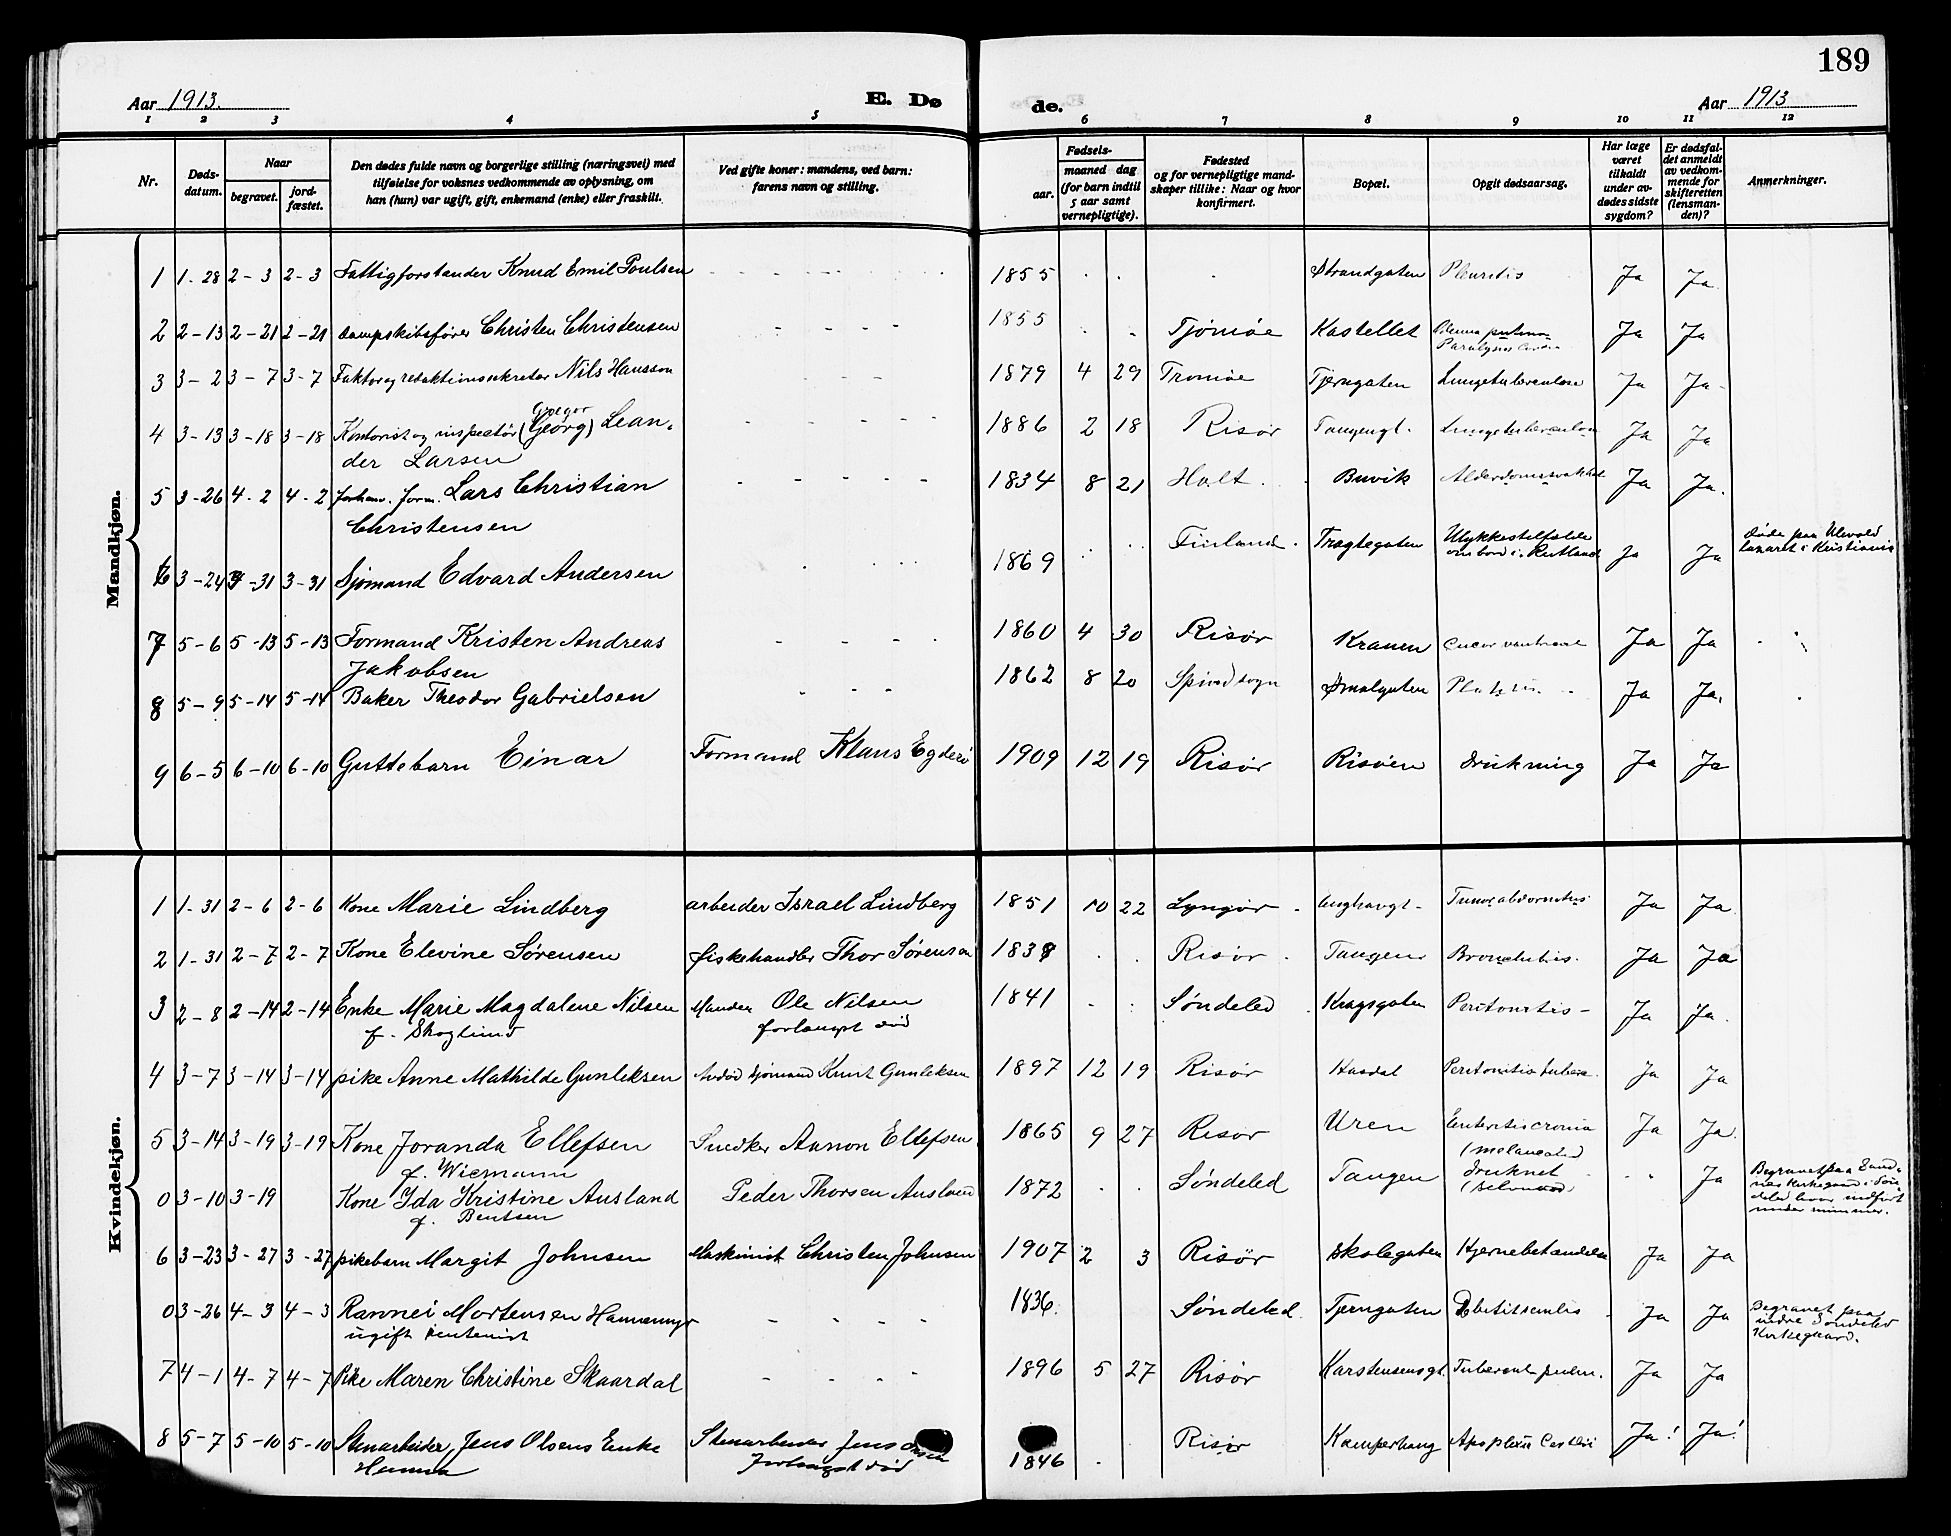 189
Aar 1913. E. Dø de. Aar 1913
1 2 3 4 5 6 7 8 9 10 11 12
Nr. Døds-datum. Naar begravet. jord-fæstet. Den dødes fulde navn og borgerlige stilling (næringsvei) med tilføielse for voksnes vedkommende av oplysning, om han (hun) var ugift, gift, enkemand (enke) eller fraskilt. Ved gifte koner: mandens, ved barn: farens navn og stilling. Fødsels- aar. maaned dag (for barn indtil 5 aar samt vernepligtige). Fødested og for vernepligtige mand-skaper tillike: Naar og hvor konfirmert. Bopæl. Opgit dødsaarsag. Har læge været tilkaldt under av-dødes sidste sygdom? Er dødsfal-det anmeldt av vedkom-mende for skifteretten (lensman-den)? Anmerkninger.
Mandkjøn.
1 1-28 2-3 2-3 Fattigforstander Knud Emil Poulsen 1855 Strandgaten Pleuritis Ja Ja
2 2-13 2-21 2-21 Dampskibsfører Christen Christensen 1855 Tjømøe Kastellet Ja Ja
3 3-2 3-7 3-7 Faktor og redaktionssekretær Nils Hansson 1879 4 29 Tromøe Tjerngaten Lungetuberculose Ja Ja
4 3-13 3-18 3-18 Kontorist og inspectør (Georg) Gregor Lean-
der Larsen 1886 2 18 Risør Tangengt. Lungetuberculose Ja Ja
5 3-26 4-2 4-2 forhenv. form. Lars Christian
Christensen 1834 8 21 Holt Buvik Alderdomssvakhet Ja Ja.
6 3-24 3-31 3-31 Sjømand Edvard Andersen 1869 Finland Tragtegaten Ulykkestilfælde
ombord i Rutland Ja Ja Døde paa Ulevold
lazaret i Kristiania
7 5-6 5-13 5-13 Formand Kristen Andreas
Jakobsen 1860 4 30 Risør Kranen Cancer ventricul Ja Ja
8 5-9 5-14 5-14 Baker Theodor Gabrielsen 1862 8 20 Spindsogn Smalgaten Ja Ja.
9 6-5 6-10 6-10 Guttebarn Einar Formand Klaus Egderø 1909 12 19 Risør Risøen drukning Ja Ja
Kvindekjøn.
1 1-31 2-6 2-6 Kone Marie Lindberg arbeider Israel Lindberg 1851 10 22 Lyngør Tumor abdominis Ja Ja
2 1-31 2-7 2-7 Kone Elevine Sørensen fiskehandler Thor Sørensen 1838 Risør Tangen Bronchitis. Ja Ja
3 2-8 2-14 2-14 Enke Marie Magdalene Nilsen
f. Skoglund Manden Ole Nilsen
forlængst død 1841 Søndeled Kragsgaten Peritonitis Ja Ja.
4 3-7 3-14 3-14 pike Anne Mathilde Gunleksen Avdød sjømand Knut Gunleksen 1897 12 19 Risør Hasdal Peritonitis tuberc. Ja Ja
5 3-14 3-19 3-19 Kone Joranda Ellefsen
f. Wiemann Snedker Aanon Ellefsen 1865 9 27 Risør Uren Enteritis cronia Ja Ja.
0 3-10 3-19 Kone Ida Kristine Ausland
f. Bentsen Peder Thorsen Ausland 1872 Søndeled Tangen (melancoled
druknet Ja Begravet paa Sand-
nes kirkegaard i Søn-
deled hvor indført
under nummer.
6 3-23 3-27 3-27 pikebarn Margit Johnsen Maskinist Christen Johnsen 1907 2 3 Risør Skolegaten Hjernebetændelse Ja Ja
0 3-26 4-3 4-3 Rannei Mortensen Hammermyr
ugift rentenist 1836. Søndeled Tjerngaten Ja Ja Begravet paa
indre Søndeled
Kirkegaard.
7 4-1 4-7 4-7 Pike Maren Christine Skaardal 1896 5 27 Risør Karstensensgt. Tubercul. pulm. Ja Ja
8 5-7 5-10 5-10 Stenarbeider Jens Olsens Enke
Hanna Stenarbeider Jens Olsen
forlængst død 1846 Risør Kamperhaug Apoplexii Cerebri Ja! Ja!